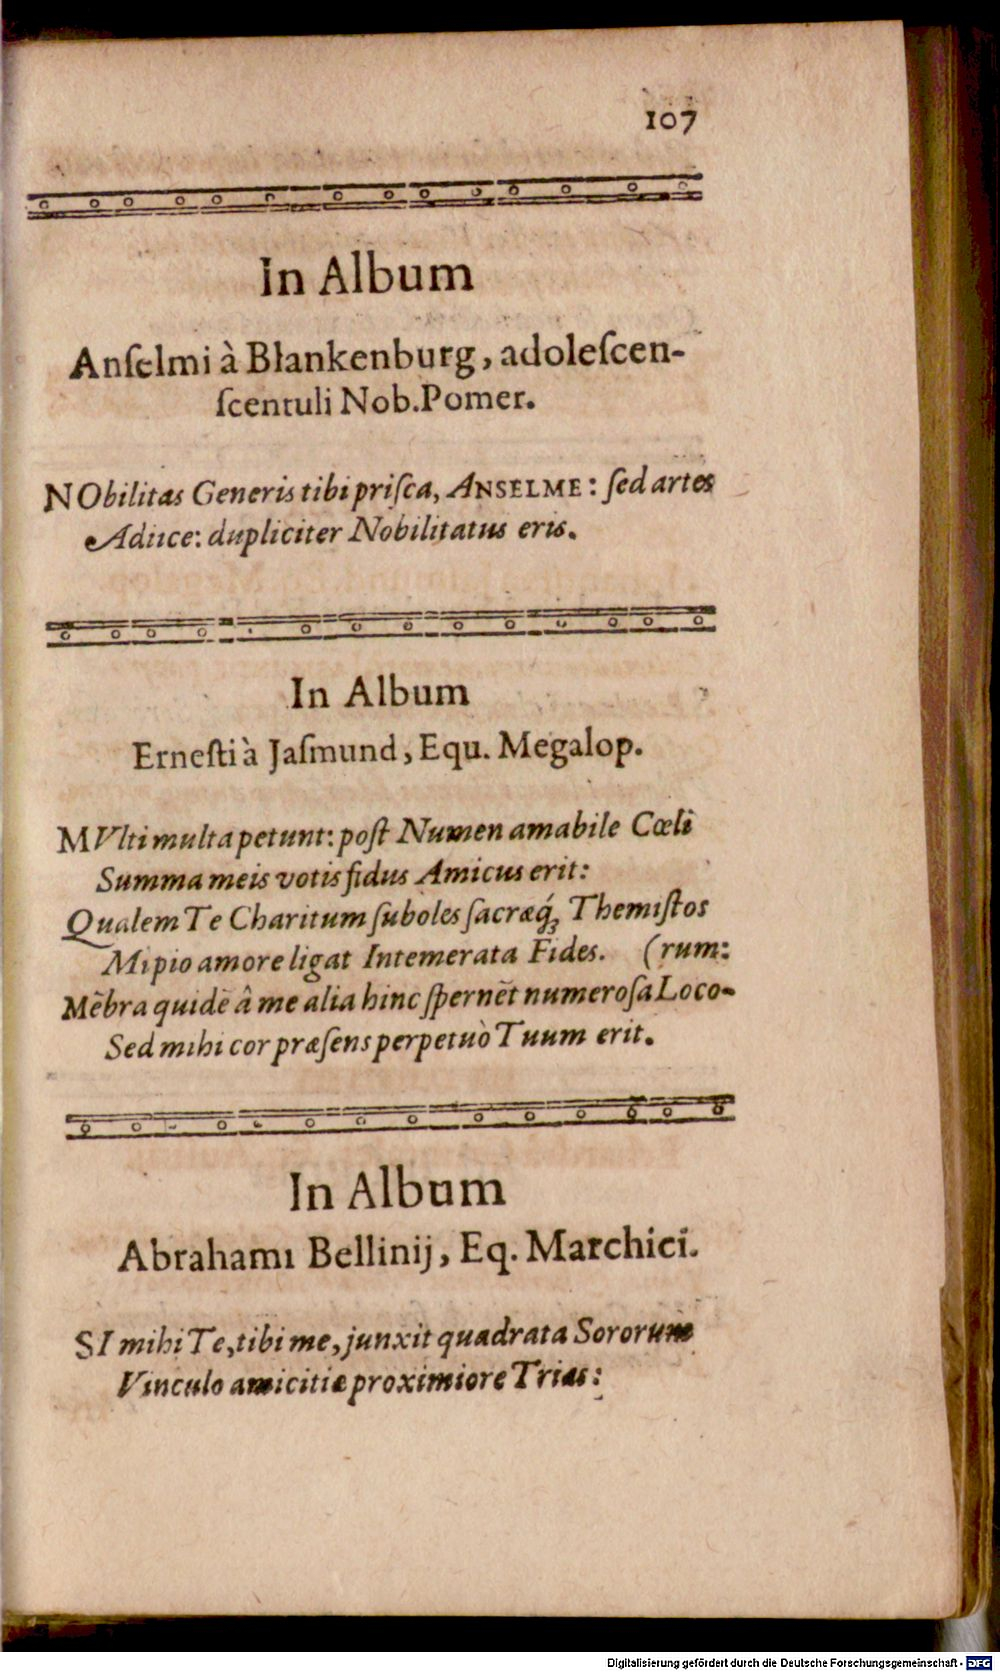 107
In Album
Anſelmi à Blankenburg, adoleſcen-
ſcentuli Nob.Pomer.
NObilitas Generis tibi priſca, ANSELME: ſed artes
Adiice: dupliciter Nobilitatus eris.
In Album
Erneſti à Jaſmund, Equ. Megalop.
MVlti multa petunt: poſt Numen amabile Cœli
Summa meis votis fidus Amicus erit:
Qualem Te Charitum ſuboles ſacræq́; Themiſtos
Mi pio amore ligat Intemerata Fides. (rum:
Mẽbra quidẽ â me alia hinc ſpernẽt numeroſa Loco-
Sed mihi cor præſens perpetuò Tuum erit.
In Album
Abrahami Bellinij, Eq. Marchici.
SI mihi Te, tibi me, junxit quadrata Sororum
Vinculo amicitiæ proximiore Trias:
Digitalisierung gefördert durch die Deutsche Forschungsgemeinschaft - DFG